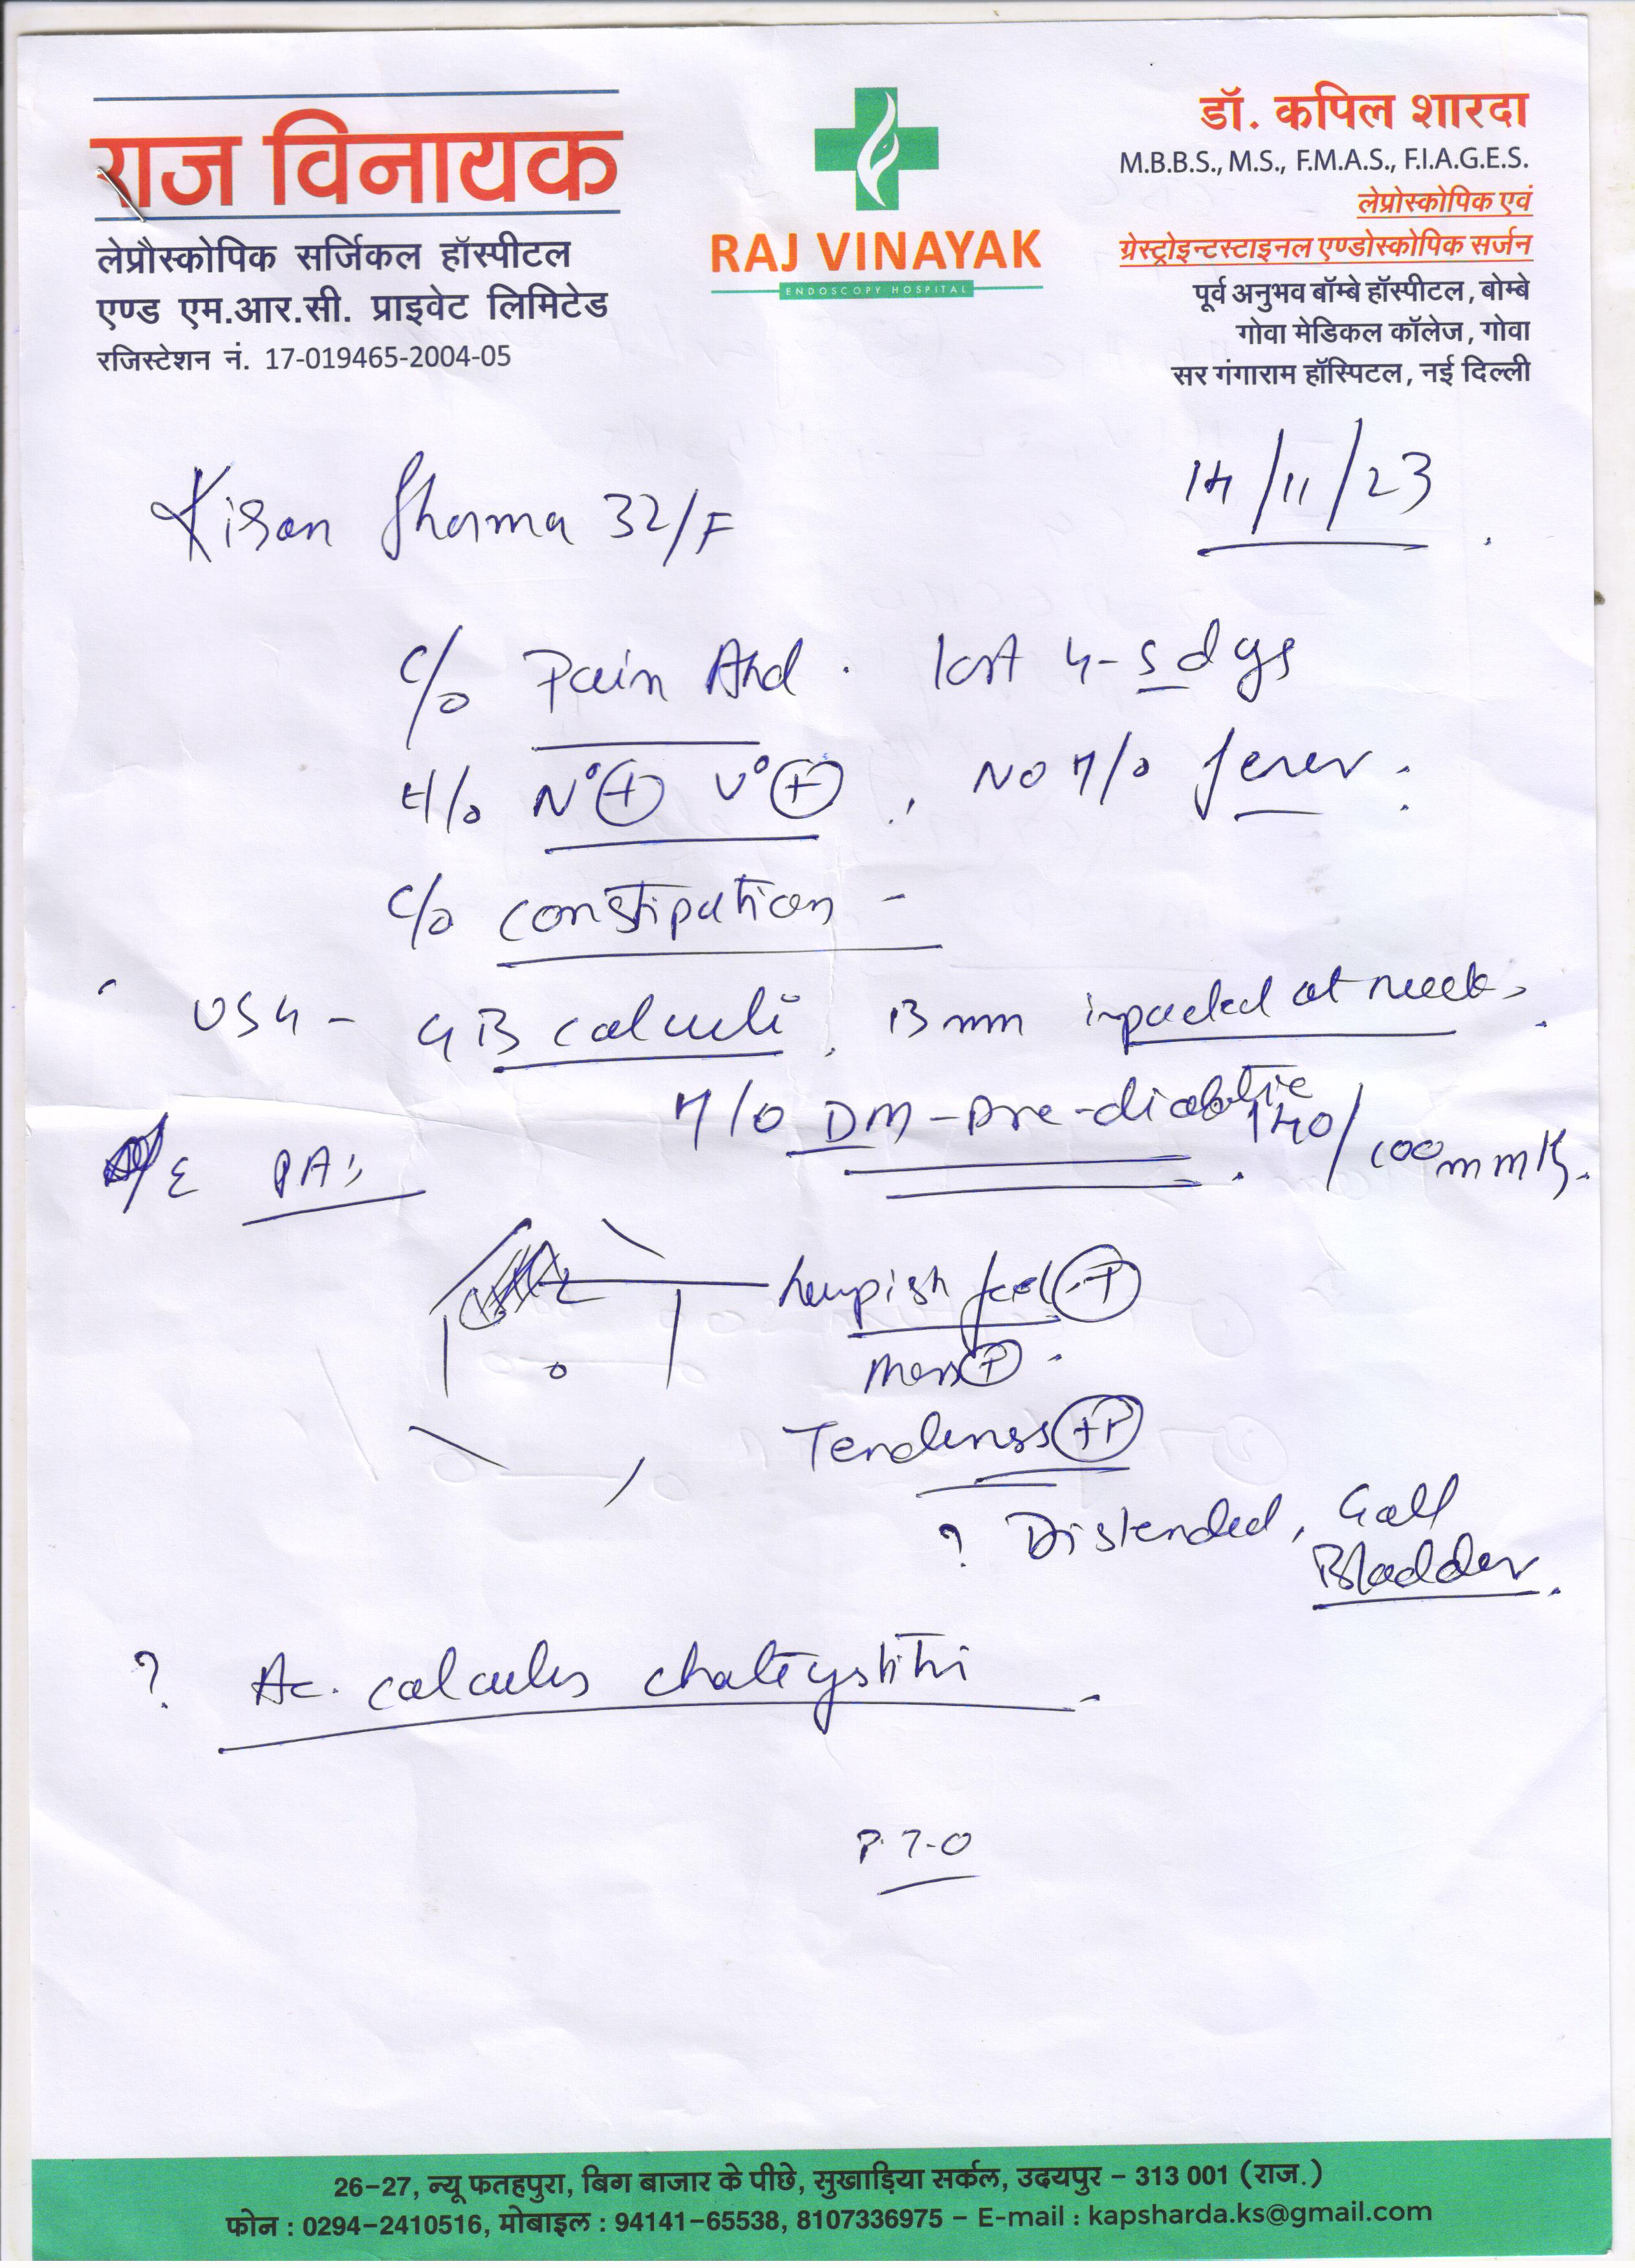 राज विनायक
लेप्रौस्कोपिक सर्जिकल हॉस्पीटल
एण्ड एम.आर.सी. प्राइवेट लिमिटेड
रजिस्टेशन नं. 17-019465-2004-05
RAJ VINAYAK
ENDOSCOPY HOSPITAL
डॉ. कपिल शारदा
M.B.B.S., M.S., F.M.A.S., F.I.A.G.E.S.
लेप्रोस्कोपिक एवं
ग्रेस्ट्रोइन्टस्टाइनल एण्डोस्कोपिक सर्जन
पूर्व अनुभव बॉम्बे हॉस्पीटल, बोम्बे
गोवा मेडिकल कॉलेज, गोवा
सर गंगाराम हॉस्पिटल, नई दिल्ली
14/11/23
Kiran Sharma 32/F
C/o Pain Abd. last 4-5 days
H/o N° (+) V° (+), No H/o fever.
C/o constipation -
USG - GB calculi, 13 mm impacted at neck,
H/o DM - pre-diabetic.
140/100 mmHg.
O/E PA:
Lumpish feel (+)
Mass (+).
Tenderness (++)
? Distended, Gall
Bladder.
? Ac. calculus cholecystitis.
P.T.O
26-27, न्यू फतहपुरा, बिग बाजार के पीछे, सुखाड़िया सर्कल, उदयपुर - 313 001 (राज.)
फोन : 0294-2410516, मोबाइल : 94141-65538, 8107336975 - E-mail : kapsharda.ks@gmail.com